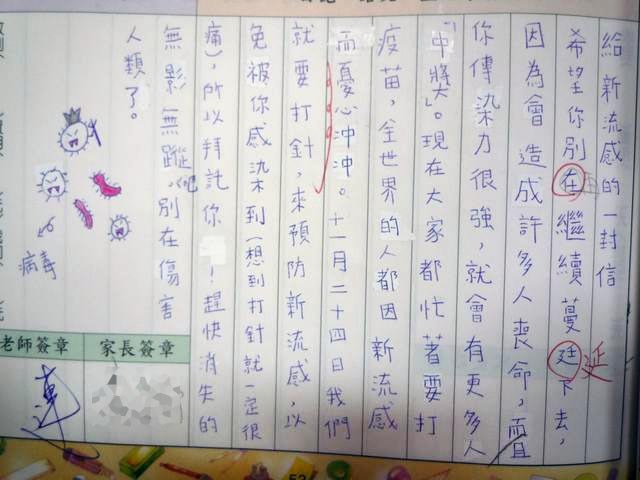 給新流感的一封信
希望你別在繼續蔓廷下去，
延
因為會造成許多人喪命，而且
你傳染力很強，就會有更多人
「中獎」。現在大家都忙著要打
疫苗，全世界的人都因新流感
而憂心沖沖。十一月二十四日我們
就要打針，來預防新流感，以
免被你感染到（想到打針就一定很
痛），所以拜託你！趕快消失的
無影無蹤吧，別在傷害
人類了。
病毒
家長簽章
老師簽章
53